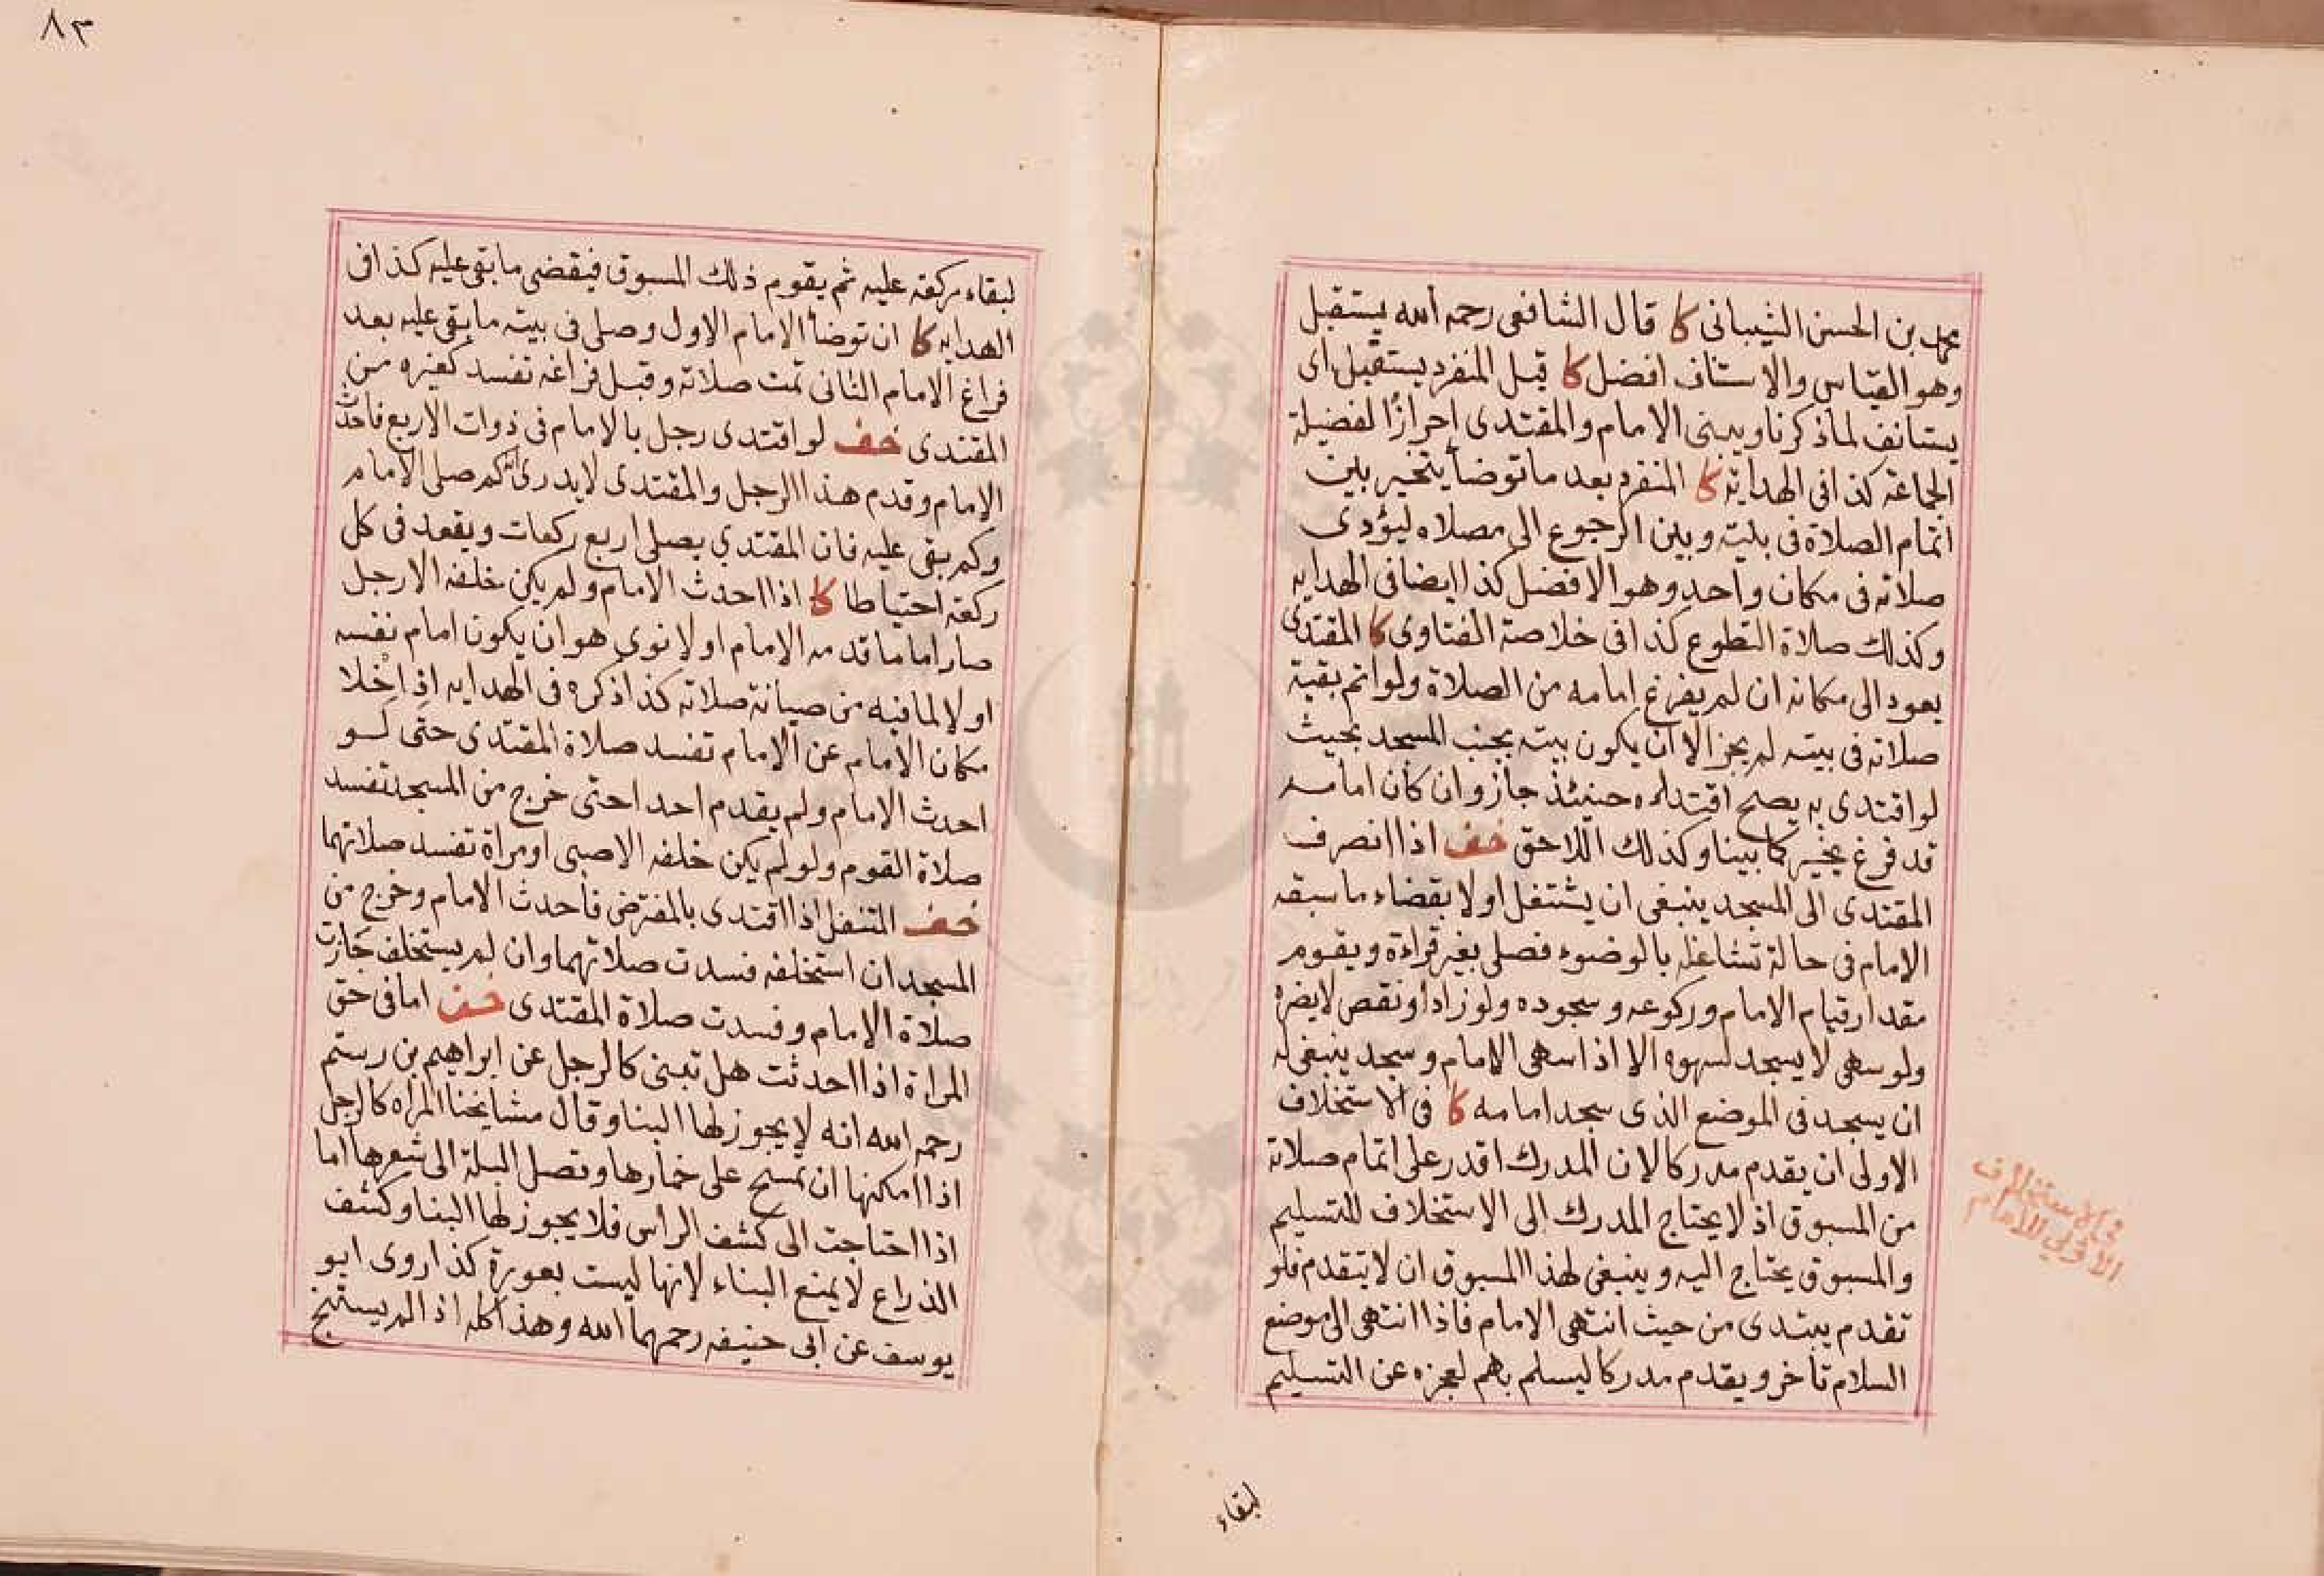 محمد بن الحسن الشيبانى كا قال الشافعى رحمه الله يستقبل
وهو القياس والاستناف افضل كا قيل المنفرد يستقبل اى
يستانف لما ذكرنا ويبنى الامام والمقتدى احرازًا لفضيلة
الجماعة كذا فى الهداية كا المنفرد بعد ما توضأ يتخير بين
اتمام الصلاة فى بيته وبين الرجوع الى مصلاه ليؤدى
صلاته فى مكان واحد وهو الافضل كذا ايضا فى الهدايه
وكذلك صلاة التطوع كذا فى خلاصة الفتاوى كا المقتدى
يعود الى مكانه ان لم يفرغ امامه من الصلاة ولو اتم بقية
صلاته فى بيته لم يجز الا ان يكون بيته بجنب المسجد بحيث
لو اقتدى به يصح اقتداءه حينئذ جاز وان كان امامه
قد فرغ يخير كما بينا وكذلك اللاحق خف اذا انصرف
المقتدى الى المسجد ينبغى ان يشتغل اولا بقضاء ما سبقه
الامام فى حالة تشاغله بالوضوء فصلى بغير قراءة ويقوم
مقدار قيام الامام وركوعه وسجوده ولو زاد او نقص لا يضره
ولو سهى لا يسجد لسهوه الا اذا سهى الامام وسجد ينبغى له
ان يسجد فى الموضع الذى سجد امامه كا فى الاستخلاف
الاولى ان يقدم مدركا لان المدرك اقدر على اتمام صلاته
من المسبوق اذ لا يحتاج المدرك الى الاستخلاف للتسليم
والمسبوق يحتاج اليه وينبغى لهذا المسبوق ان لا يتقدم فلو
تقدم يبتدى من حيث انتهى الامام فاذا انتهى الى موضع
السلام تأخر ويقدم مدركا ليسلم بهم لعجزه عن التسليم
فى الاستخلاف
الاولى للامام
لبقاء
٨٣
لبقاء ركعة عليه ثم يقوم ذلك المسبوق فيقضى ما بقى عليه كذا فى
الهدايه كا ان توضأ الامام الاول وصلى فى بيته ما بقى عليه بعد
فراغ الامام الثانى تمت صلاته وقبل فراغه تفسد كغيره من
المقتدى خف لو اقتدى رجل بالامام فى ذوات الاربع فاحدث
الامام وقدم هذا الرجل والمقتدى لا يدرى انه كم صلى الامام
وكم بقى عليه فان المقتدي يصلى اربع ركعات ويقعد فى كل
ركعة احتياطا كا اذا احدث الامام ولم يكن خلفه الا رجل
صار اماما قدمه الامام او لا نوى هو ان يكون امام نفسه
او لا لما فيه من صيانة صلاته كذا ذكره فى الهدايه اذ اخلا
مكان الامام عن الامام تفسد صلاة المقتدى حتى لو
احدث الامام ولم يقدم احد احتى خرج من المسجد تفسد
صلاة القوم ولو لم يكن خلفه الا صبى او مراة تفسد صلاتهما
خف المتنفل اذا اقتدى بالمفترض فاحدث الامام وخرج من
المسجد ان استخلفه فسدت صلاتهما وان لم يستخلف جازت
صلاة الامام وفسدت صلاة المقتدى خف اما فى حق
المراة اذا احدثت هل تبنى كالرجل عن ابراهيم بن رستم
رحمه الله انه لا يجوز لها البنا وقال مشايخنا المراه كالرجل
اذا امكنها ان تمسح على خمارها وتصل البلة الى شعرها اما
اذا احتاجت الى كشف الراس فلا يجوز لها البنا وكشف
الذراع لا يمنع البناء لانها ليست بعورة كذا روى ابو
يوسف عن ابى حنيفه رحمهما الله وهذا كله اذا لم يستنج